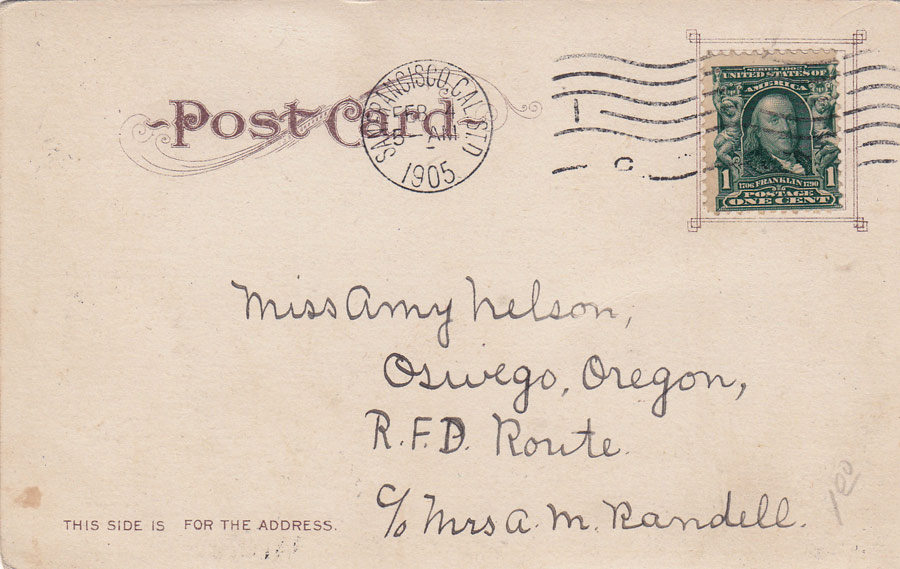 Post Card
SAN FRANCISCO, CAL. STA. D
FEB
5 AM
1905
SERIES 1902
UNITED STATES OF
AMERICA
1 1
1706 FRANKLIN 1790
POSTAGE
ONE CENT
Miss Amy Nelson,
Oswego, Oregon,
R.F.D. Route.
c/o Mrs A. M. Randell.
100
THIS SIDE IS FOR THE ADDRESS.